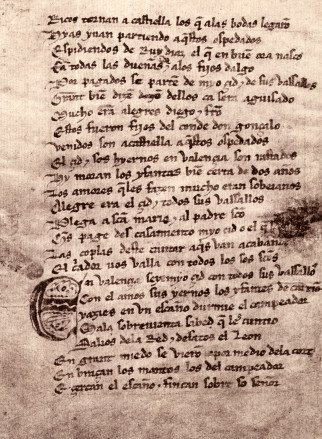 Ricos tornan a castiella los q̃ alas bodas legarõ
Hyas yuan partiendo aq̃stos ospedados
Espidiendos de Ruy diaz el q̃ en buẽ ora nasco
E a todas las dueñas ⁊ alos fijos dalgo
Por pagados se parten de myo çid ⁊ de sus vassallos
Grant biẽ dizẽ dellos ca sera aguisado
Mucho eran alegres diego ⁊ ferrãdo
Estos fueron fijos del conde don gonçalo
Venidos son acastiella aq̃stos ospedados
El çid ⁊ sos hyernos en valençia son rastados
Hy moran los yfantes biẽ cerca de dos años
Los amores q̃les fazen mucho eran sobeianos
Alegre era el çid ⁊ todos sus vassallos
Plega a sc̃a maria ⁊ al padre sc̃o
Q̃s page des casamiento myo çid o el q̃
Las coplas deste cantar aq̃s van acabando
El cador uos valla con todos los sos sc̃os
En valençia seye myo çid con todos sus vassallos
Con el amos sus yernos los yfantes de carriõ
Yazies en vn escaño durmie el campeador
Mala sobreuienta sabed que les cuntio
Salios dela Red ⁊ desatos el Leon
En grant miedo se vierõ por medio dela cort
Enbraçan los mantos los del campeador
E çercan el escaño ⁊ fincan sobre so señor